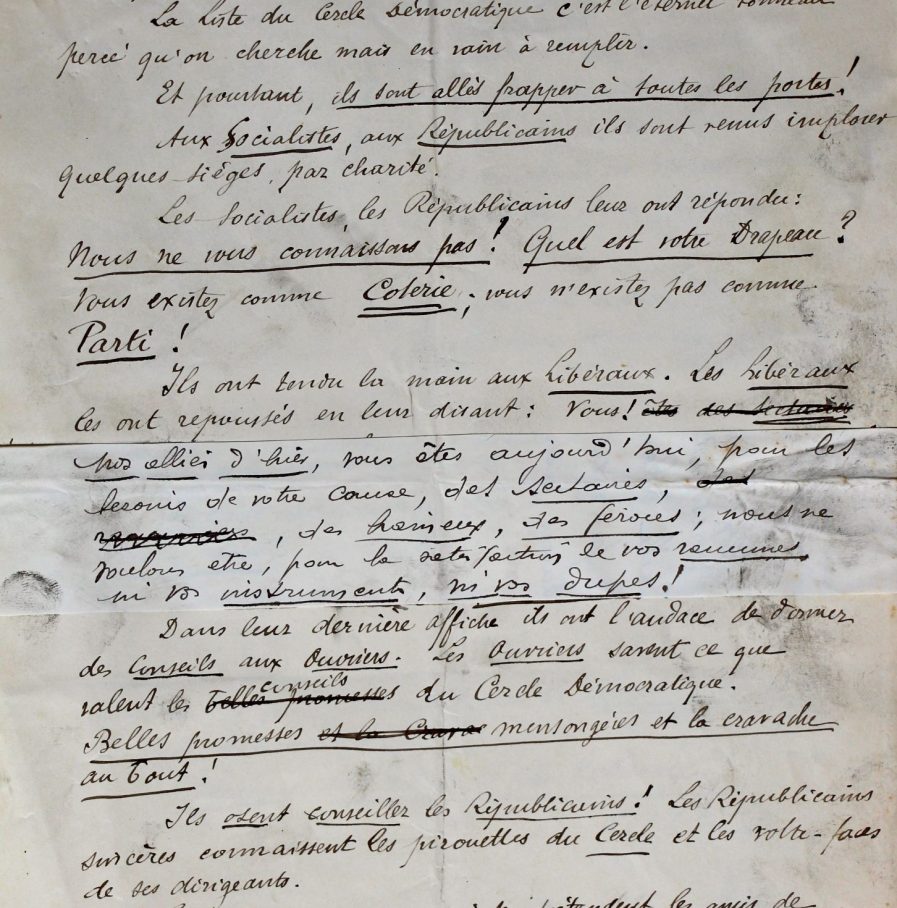 La Liste du Cercle Démocratique c'est l'éternel tonneau
percé qu'on cherche mais en vain à remplir.
Et pourtant, ils sont allés frapper à toutes les portes!
Aux Socialistes, aux Républicains ils sont venus implorer
quelques sièges, par charité.
Les Socialistes, les Républicains leur ont répondu:
Nous ne vous connaissons pas! Quel est votre Drapeau?
Vous existez comme Coterie; vous n'existez pas comme
Parti!
Ils ont tendu la main aux Libéraux. Les Libéraux
les ont repoussés en leur disant: Vous! êtes des sectaires
nos alliés d'hier, vous êtes aujourd'hui, pour les
besoins de votre cause, des sectaires, des
, des haineux, des féroces; nous ne
voulons être, pour la satisfaction de vos rancunes
ni vos instruments, ni vos dupes!
Dans leur dernière affiche ils ont l'audace de donner
des Conseils aux Ouvriers. Les Ouvriers savent ce que
conseils
valent les belles promesses du Cercle Démocratique.
Belles promesses et la Crava mensongères et la cravache
au bout!
Ils osent conseiller les Républicains! Les Républicains
sincères connaissent les pirouettes du Cercle et les volte-faces
de ses dirigeants.
les amis de